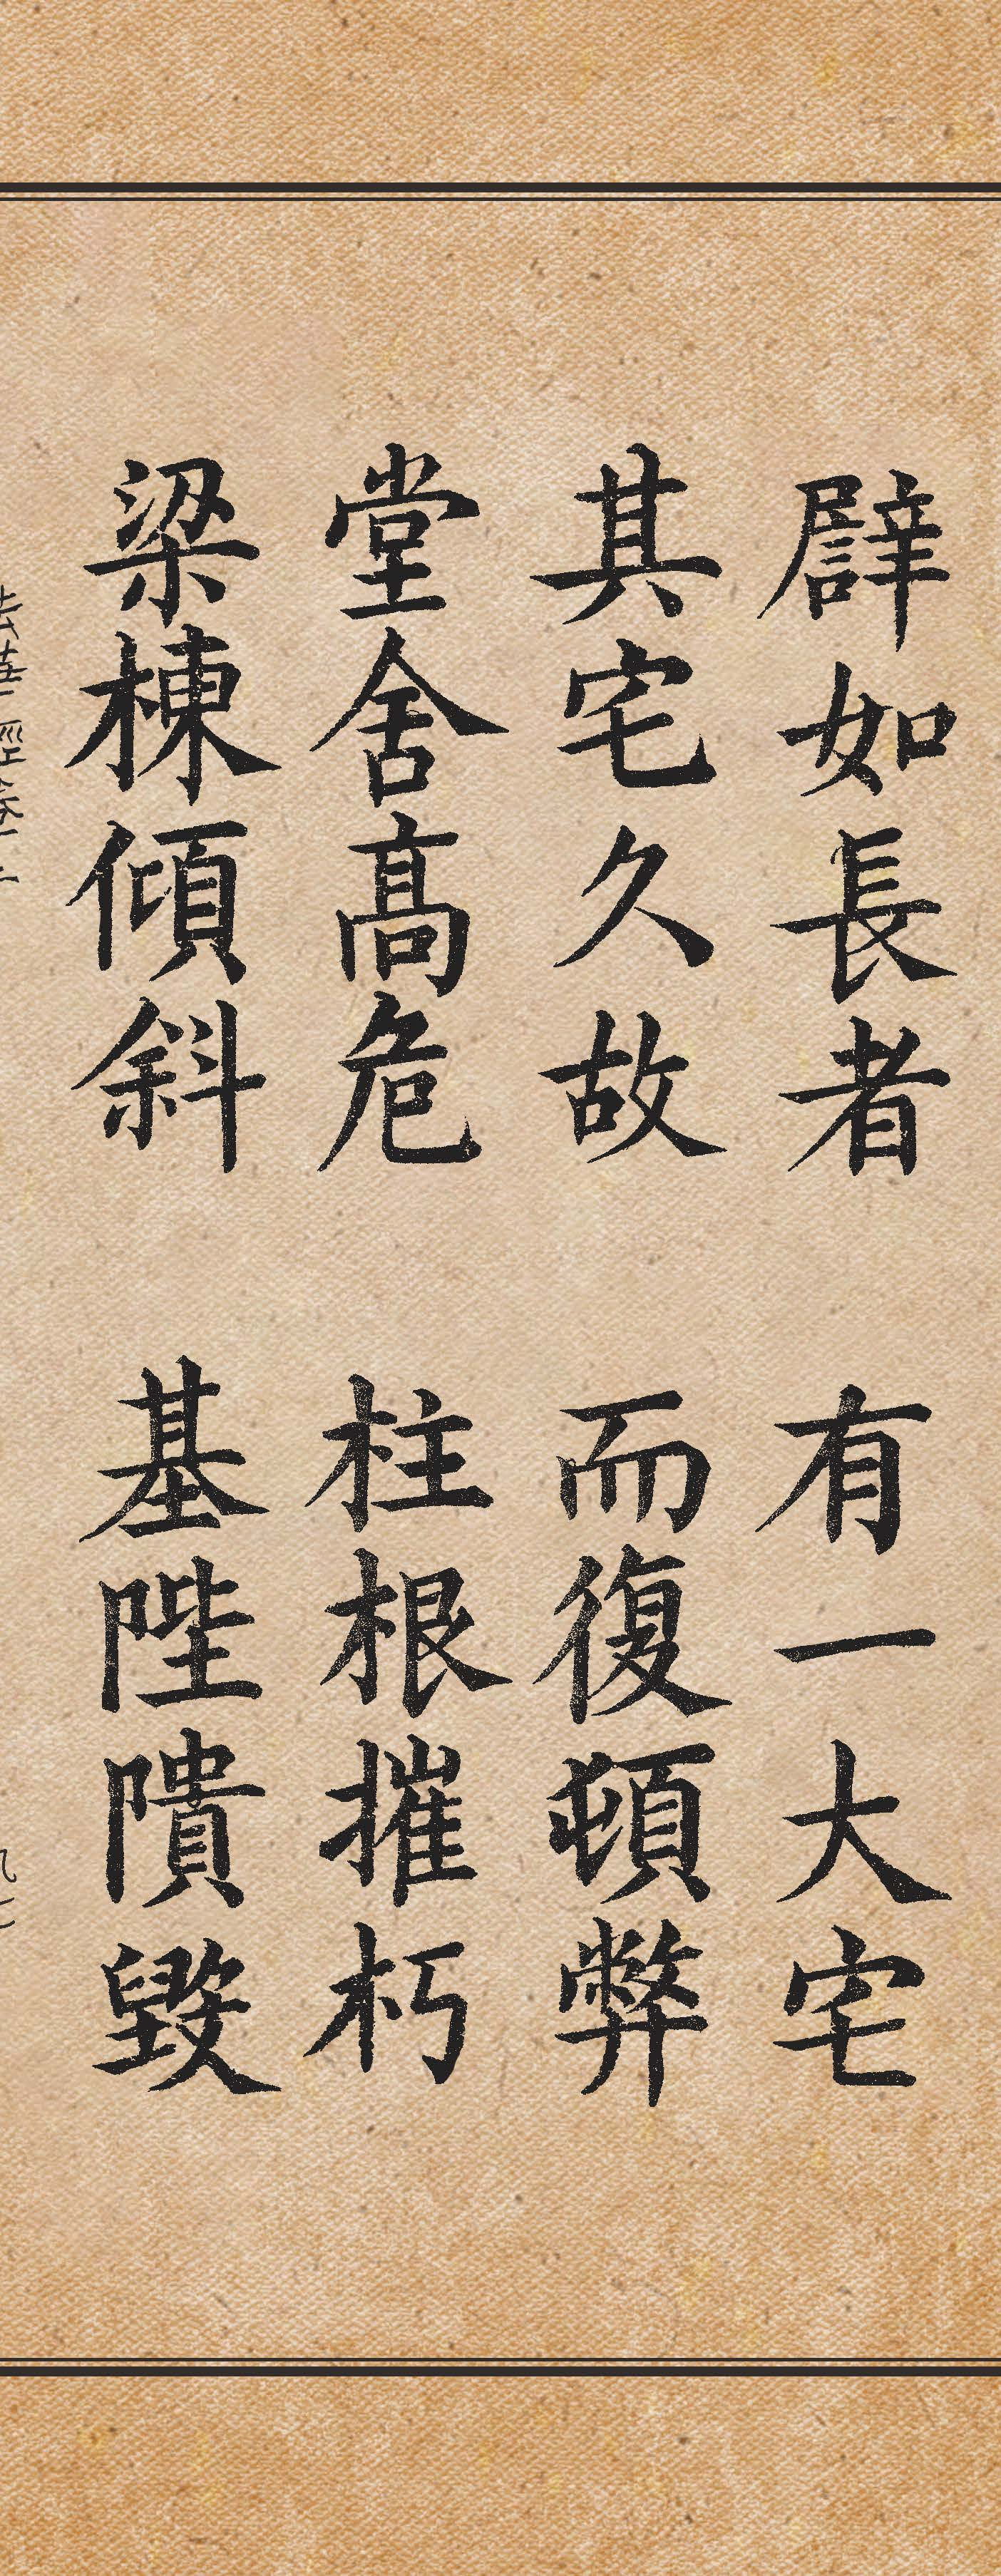 譬如長者 有一大宅
其宅久故 而復頓弊
堂舍高危 柱根摧朽
梁棟傾斜 基陛隤毀